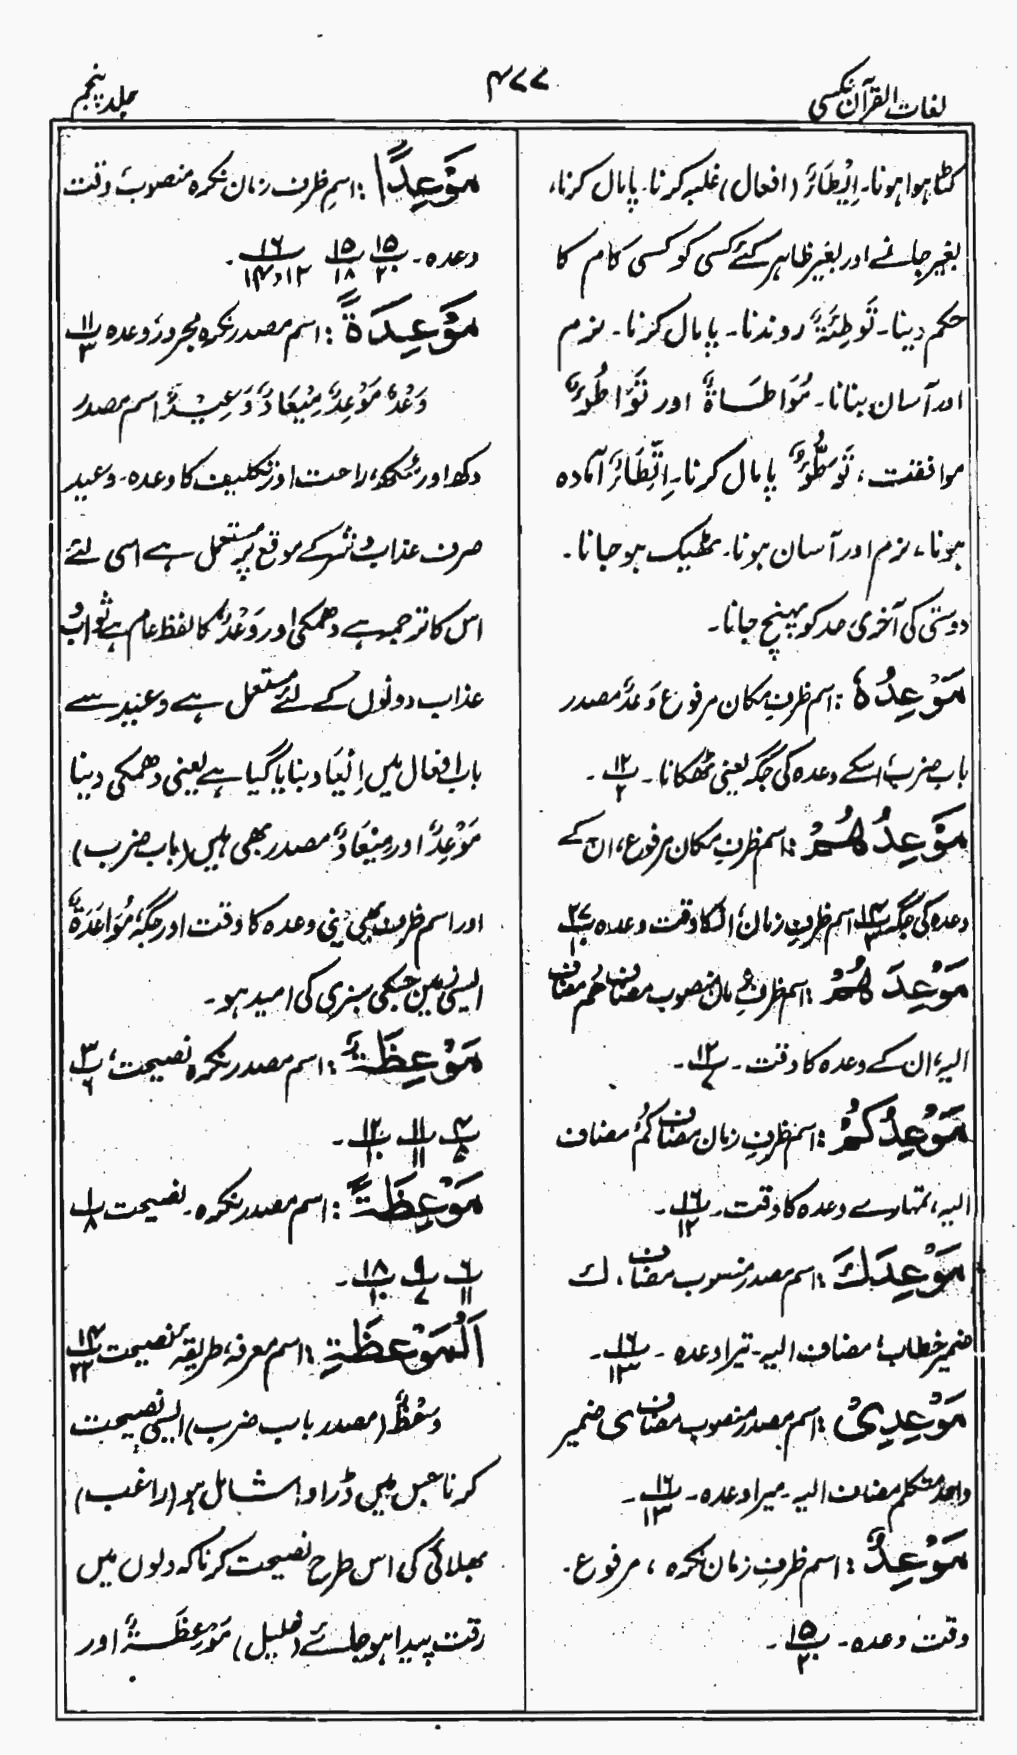 لغات القرآن نکسی
۴۷۷
جلد پنجم
کٹا ہوا ہونا۔ اِیْطَاءٌ (افعال) غلبہ کرنا۔ پامال کرنا،
بغیر جانے اور بغیر ظاہر کئے کسی کو کسی کام کا
حکم دینا۔ تَوْطِئَةٌ روندنا۔ پامال کرنا۔ نرم
اور آسان بنانا۔ مُوَاطَاةٌ اور تَوَاطُؤٌ
موافقت، تَوَطُّؤٌ پامال کرنا۔ اِتِّطَاءٌ آمادہ
ہونا، نرم اور آسان ہونا۔ ٹھیک ہو جانا۔
دوستی کی آخری حد کو پہنچ جانا۔
مَوْعِدُهٗ : اسم ظرفِ مکان مرفوع وَعْدٌ مصدر
باب ضرب، اسکے وعدہ کی جگہ یعنی ٹھکانا۔ ۱۲/۲ ۔
مَوْعِدُهُمْ : اسم ظرفِ مکان مرفوع، ان کے
وعدہ کی جگہ ۱۴/۳ اسم ظرفِ زمان، انکا وقت وعدہ ۲۷/۱۰
مَوْعِدَهُمْ : اسم ظرفِ زمان منصوب مضاف هُمْ مضاف
الیہ، ان کے وعدہ کا وقت ۔ ۱۲/۷ ۔
مَوْعِدُكُمْ : اسم ظرفِ زمان مضاف كُمْ مضاف
الیہ، تمہارے وعدہ کا وقت ۔ ۱۶/۱۲ ۔
مَوْعِدَكَ : اسم مصدر منسوب مضاف، ك
ضمیر خطاب مضاف الیہ۔ تیرا وعدہ ۔ ۱۶/۱۳ ۔
مَوْعِدِىْ : اسم مصدر منصوب مضاف ی ضمیر
واحد متکلم مضاف الیہ۔ میرا وعدہ ۔ ۱۶/۱۳ ۔
مَوْعِدٌ : اسم ظرفِ زمان نکرہ، مرفوع ۔
وقت وعدہ ۔ ۱۵/۲۰ ۔
مَوْعِدًا : اسمِ ظرف زمان نکرہ منصوب وقت
وعدہ ۔ ۱۵/۲۰ ۱۵/۱۸ ۱۶/۱۲و۱۴ ۔
مَوْعِدَةٍ : اسم مصدر نکرہ مجرور وعدہ ۱۱/۳
وَعْدٌ مَوْعِدٌ مِیْعَادٌ وَعِیْدٌ اسم مصدر
دکھ اور سُکھ، راحت اور تکلیف کا وعدہ۔ وعید
صرف عذاب و شر کے موقع پر مستعمل ہے اسی لئے
اس کا ترجمہ ہے دھمکی اور وَعْدٌ کا لفظ عام ہے ثواب و
عذاب دونوں کے لئے مستعمل ہے وعید سے
باب افعال میں اِیْعَاد بنایا گیا ہے یعنی دھمکی دینا
مَوْعِدٌ اور مِیْعَادٌ مصدر بھی ہیں (باب ضرب)
اور اسم ظرف بھی یعنی وعدہ کا وقت اور جگہ، مُوَاعَدَةٌ
ایسی زمین جسکی سبزی کی امید ہو ۔
مَوْعِظَةٌ : اسم مصدر نکرہ نصیحت، ۳/۶
۴/۵ ۱۱/۱۱ ۱۲/۱۰ ۔
مَوْعِظَةً : اسم مصدر نکرہ ۔ نصیحت ۱/۸
۶/۱۱ ۹/۷ ۱۸/۱۰ ۔
اَلْمَوْعِظَةِ : اسم معرفہ، طریقہ نصیحت ۱۴/۲۲
وَعْظٌ (مصدر باب ضرب) ایسی نصیحت
کرنا جس میں ڈراوا شامل ہو (راغب)
بھلائی کی اس طرح نصیحت کرنا کہ دلوں میں
رقت پیدا ہو جائے (خلیل) مَوْعِظَةٌ اور